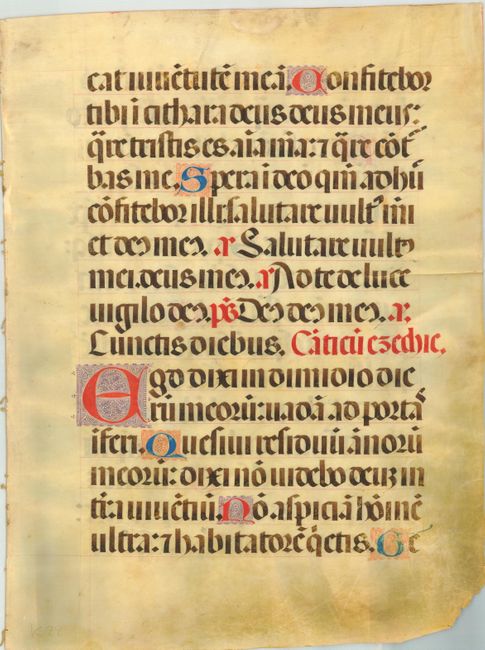 cat iuuẽtutẽ meã. Confitebor
tibi ĩ cithara deus deus meus:
q̃re tristis es aĩa mẽa: ⁊ q̃re cõt̃
bas me. Spera ĩ deo qm̃ adhũ
cõfitebor illi: salutare uult᷒ mĩ
et deꝰ meꝰ. añ Salutare uultꝰ
mei. deus meꝰ. añ A te de luce
uigilo deꝰ. p̃s Deꝰ deꝰ meꝰ. añ
Cunctis diebus. Cãticũ ezechie.
Ego dixi in dimidio die
rũ meorũ: uadã ad portã
ĩferi. Quesiui residuũ ãnorũ
meorũ: dixi nõ uidebo deuȝ in
tr̃a uiuẽtiũ. Nõ aspiciã hoĩẽ
ultra: ⁊ habitatorẽ q̃etis. Ge